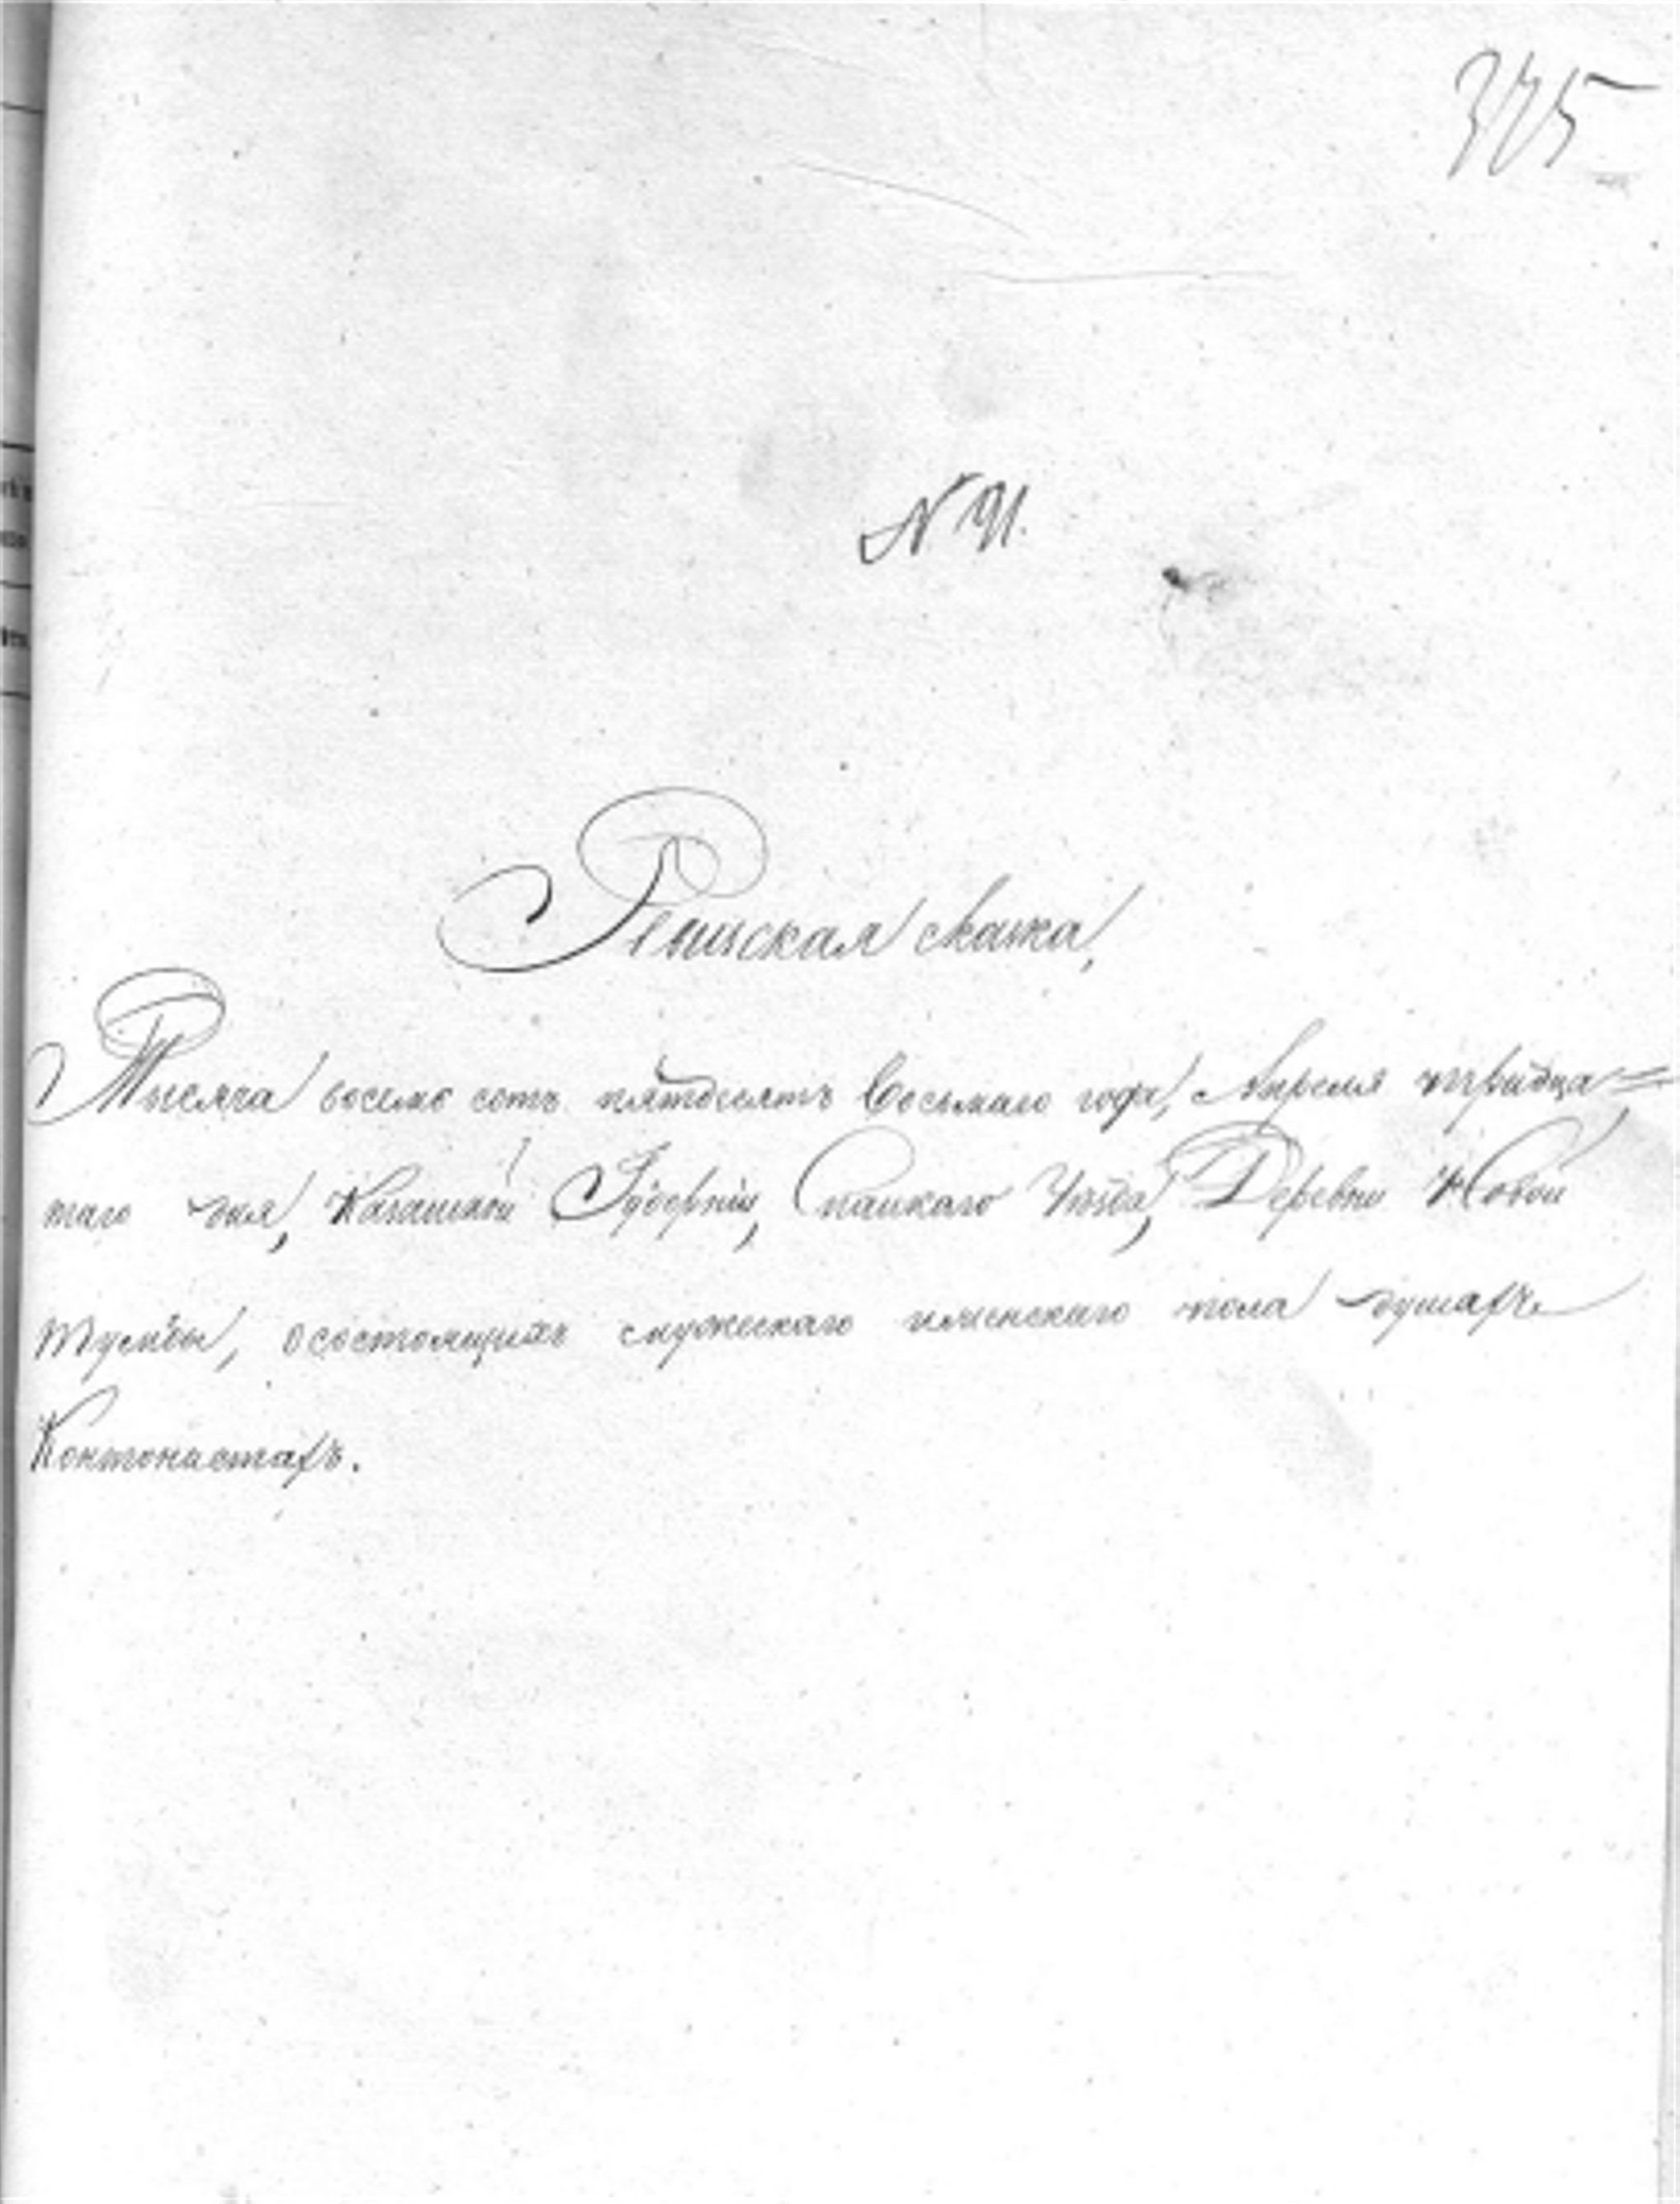 375
N 91.
Ревизская скаска,
Тысяча восемь сотъ пятдесятъ восьмаго года, Апреля тридца=
таго дня, Казанской Губерніи, Спаскаго Уѣзда, Деревни Новой
осостоящихъ мужескаго иженскаго пола душахъ
Контонистахъ.